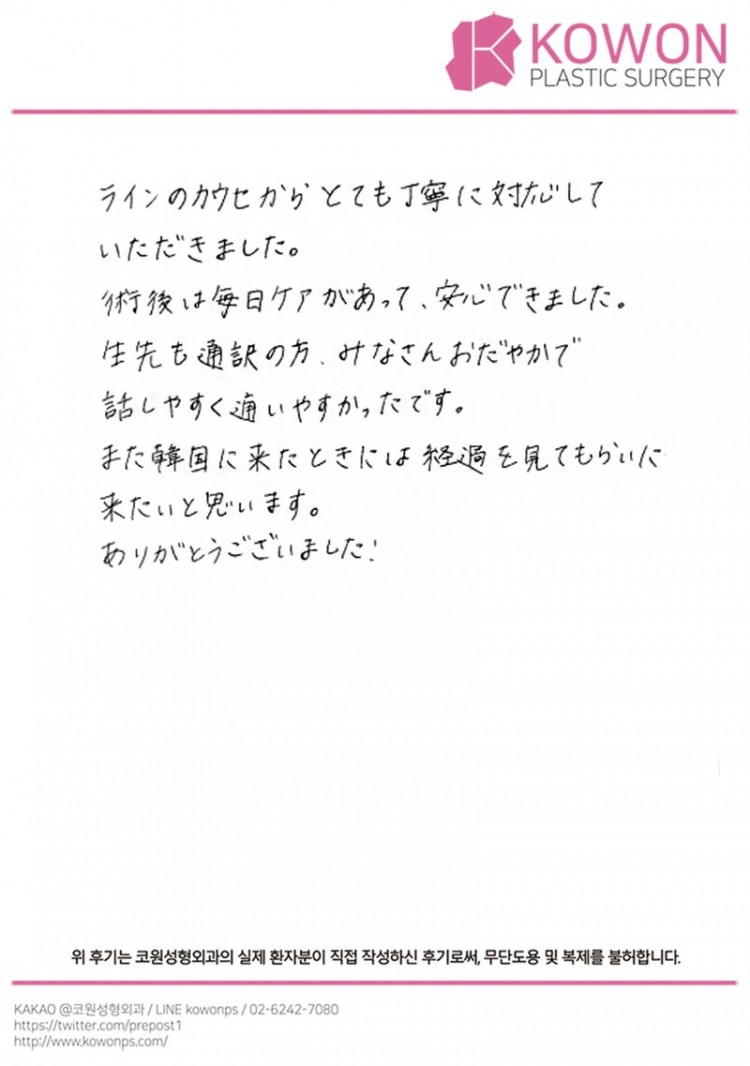 KOWON
PLASTIC SURGERY
ラインのカウセからとても丁寧に対応して
いただきました。
術後は毎日ケアがあって、安心できました。
先生も通訳の方、みなさんおだやかで
話しやすく通いやすかったです。
また韓国に来たときには経過を見てもらいに
来たいと思います。
ありがとうございました!
위 후기는 코원성형외과의 실제 환자분이 직접 작성하신 후기로써, 무단도용 및 복제를 불허합니다.
KAKAO @코원성형외과 / LINE kowonps / 02-6242-7080
https://twitter.com/prepost1
http://www.kowonps.com/